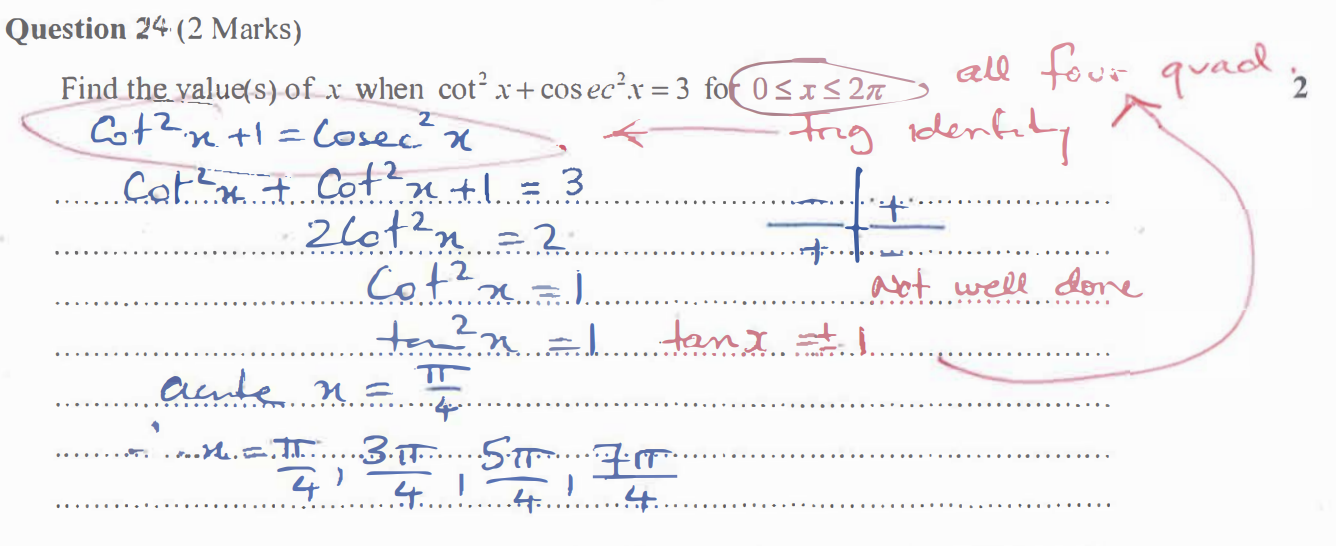 Question 24 (2 Marks)
Find the value(s) of x when cot² x + cos ec²x = 3 for 0 ≤ x ≤ 2π all four quad. 2
Cot² x + 1 = Cosec² x trig identity
Cot² x + Cot² x + 1 = 3
2Cot² x = 2
Cot² x = 1 Not well done
tan² x = 1 tan x = ± 1
acute x = π/4
∴ x = π/4, 3π/4, 5π/4, 7π/4